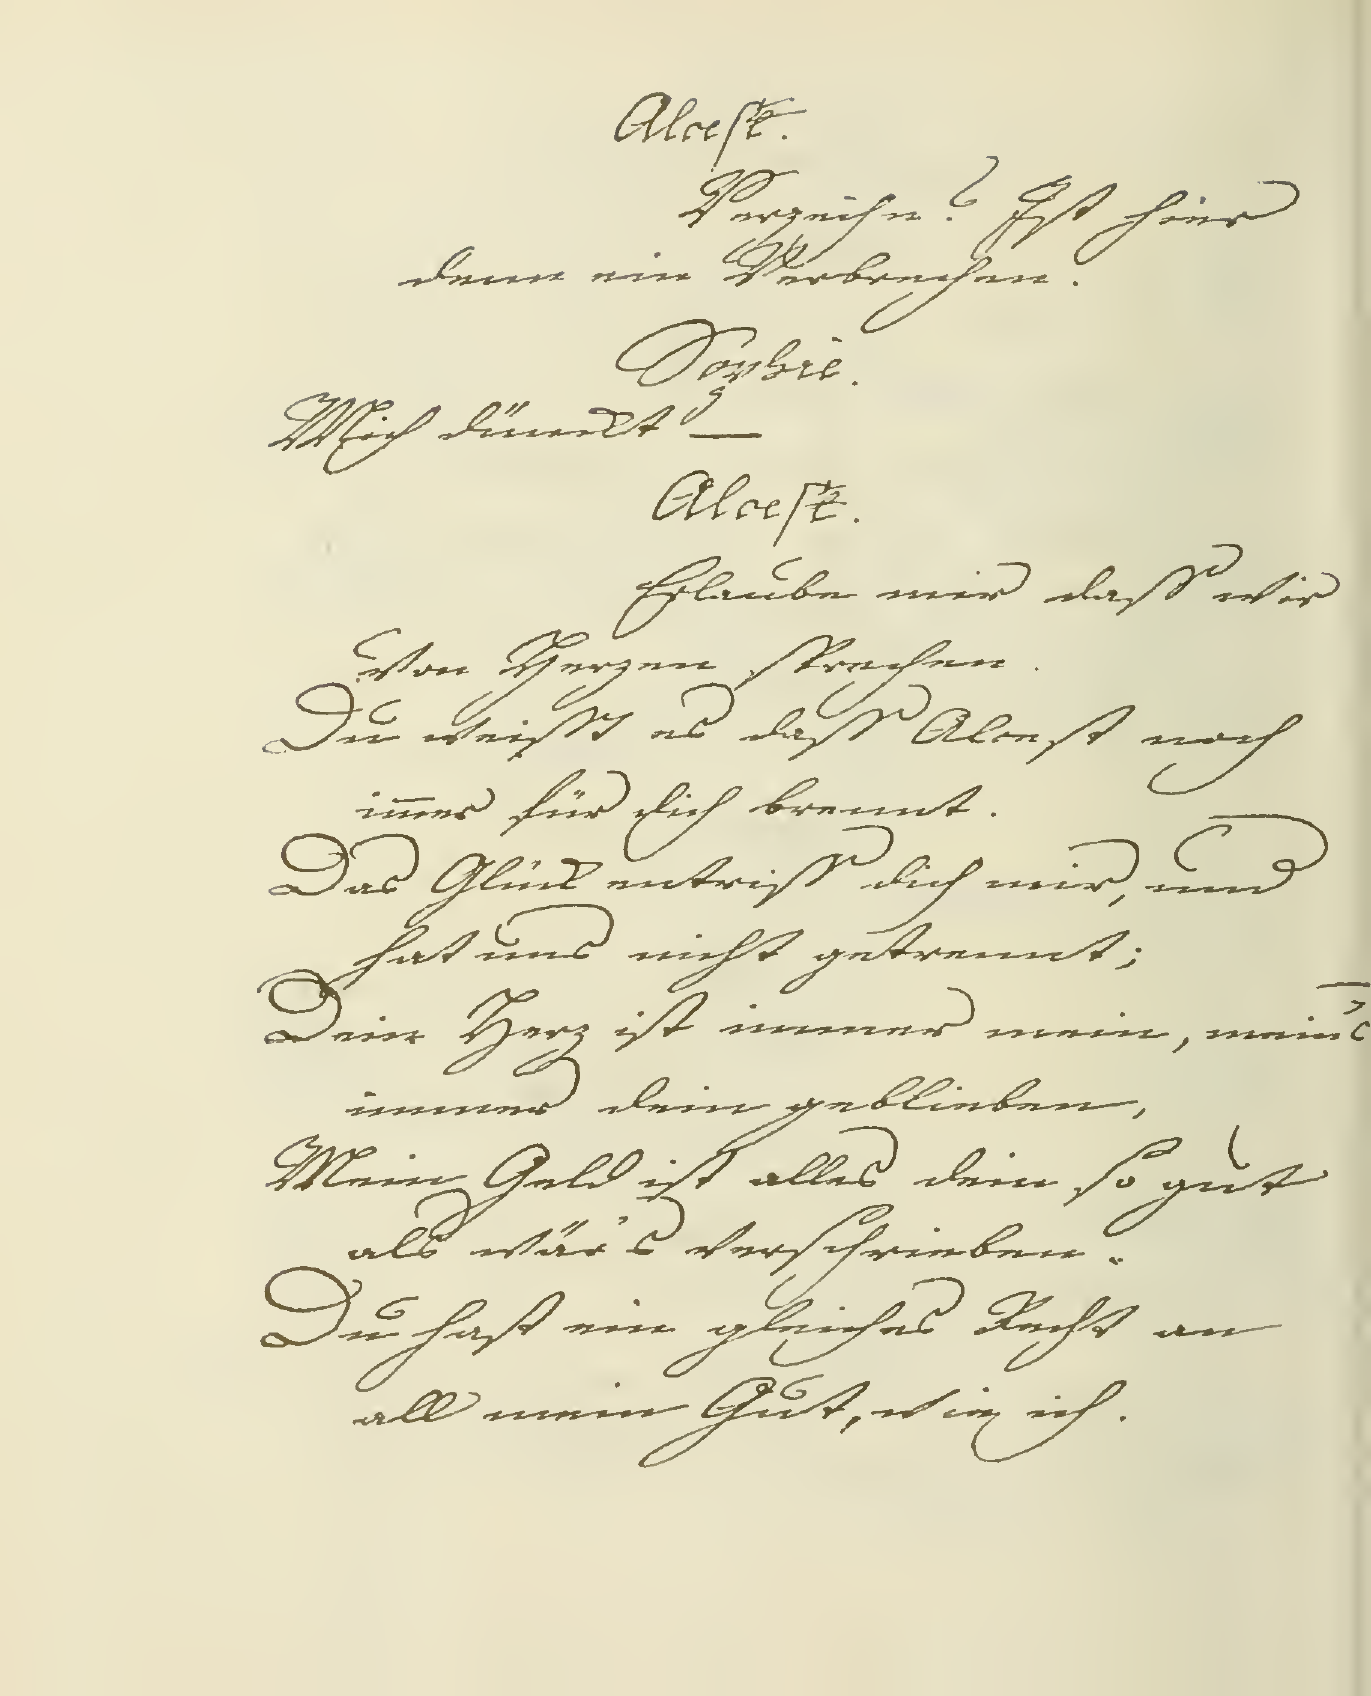 Alcest.
Verzeihn? Ist hier
denn ein Verbrechen.
Sophie.
Mich dünckt —
Alcest.
Erlaube mir dass wir
von Herzen sprechen.
Du weisst es dass Alcest noch
im̅er für dich brennt.
Das Glück entriss dich mir, und
hat uns nicht getrennt;
Dein Herz ist immer mein, meins
immer dein geblieben,
Mein Geld ist alles dein so gut
als wär's verschrieben.
Du hast ein gleiches Recht an
all mein Gut, wie ich.